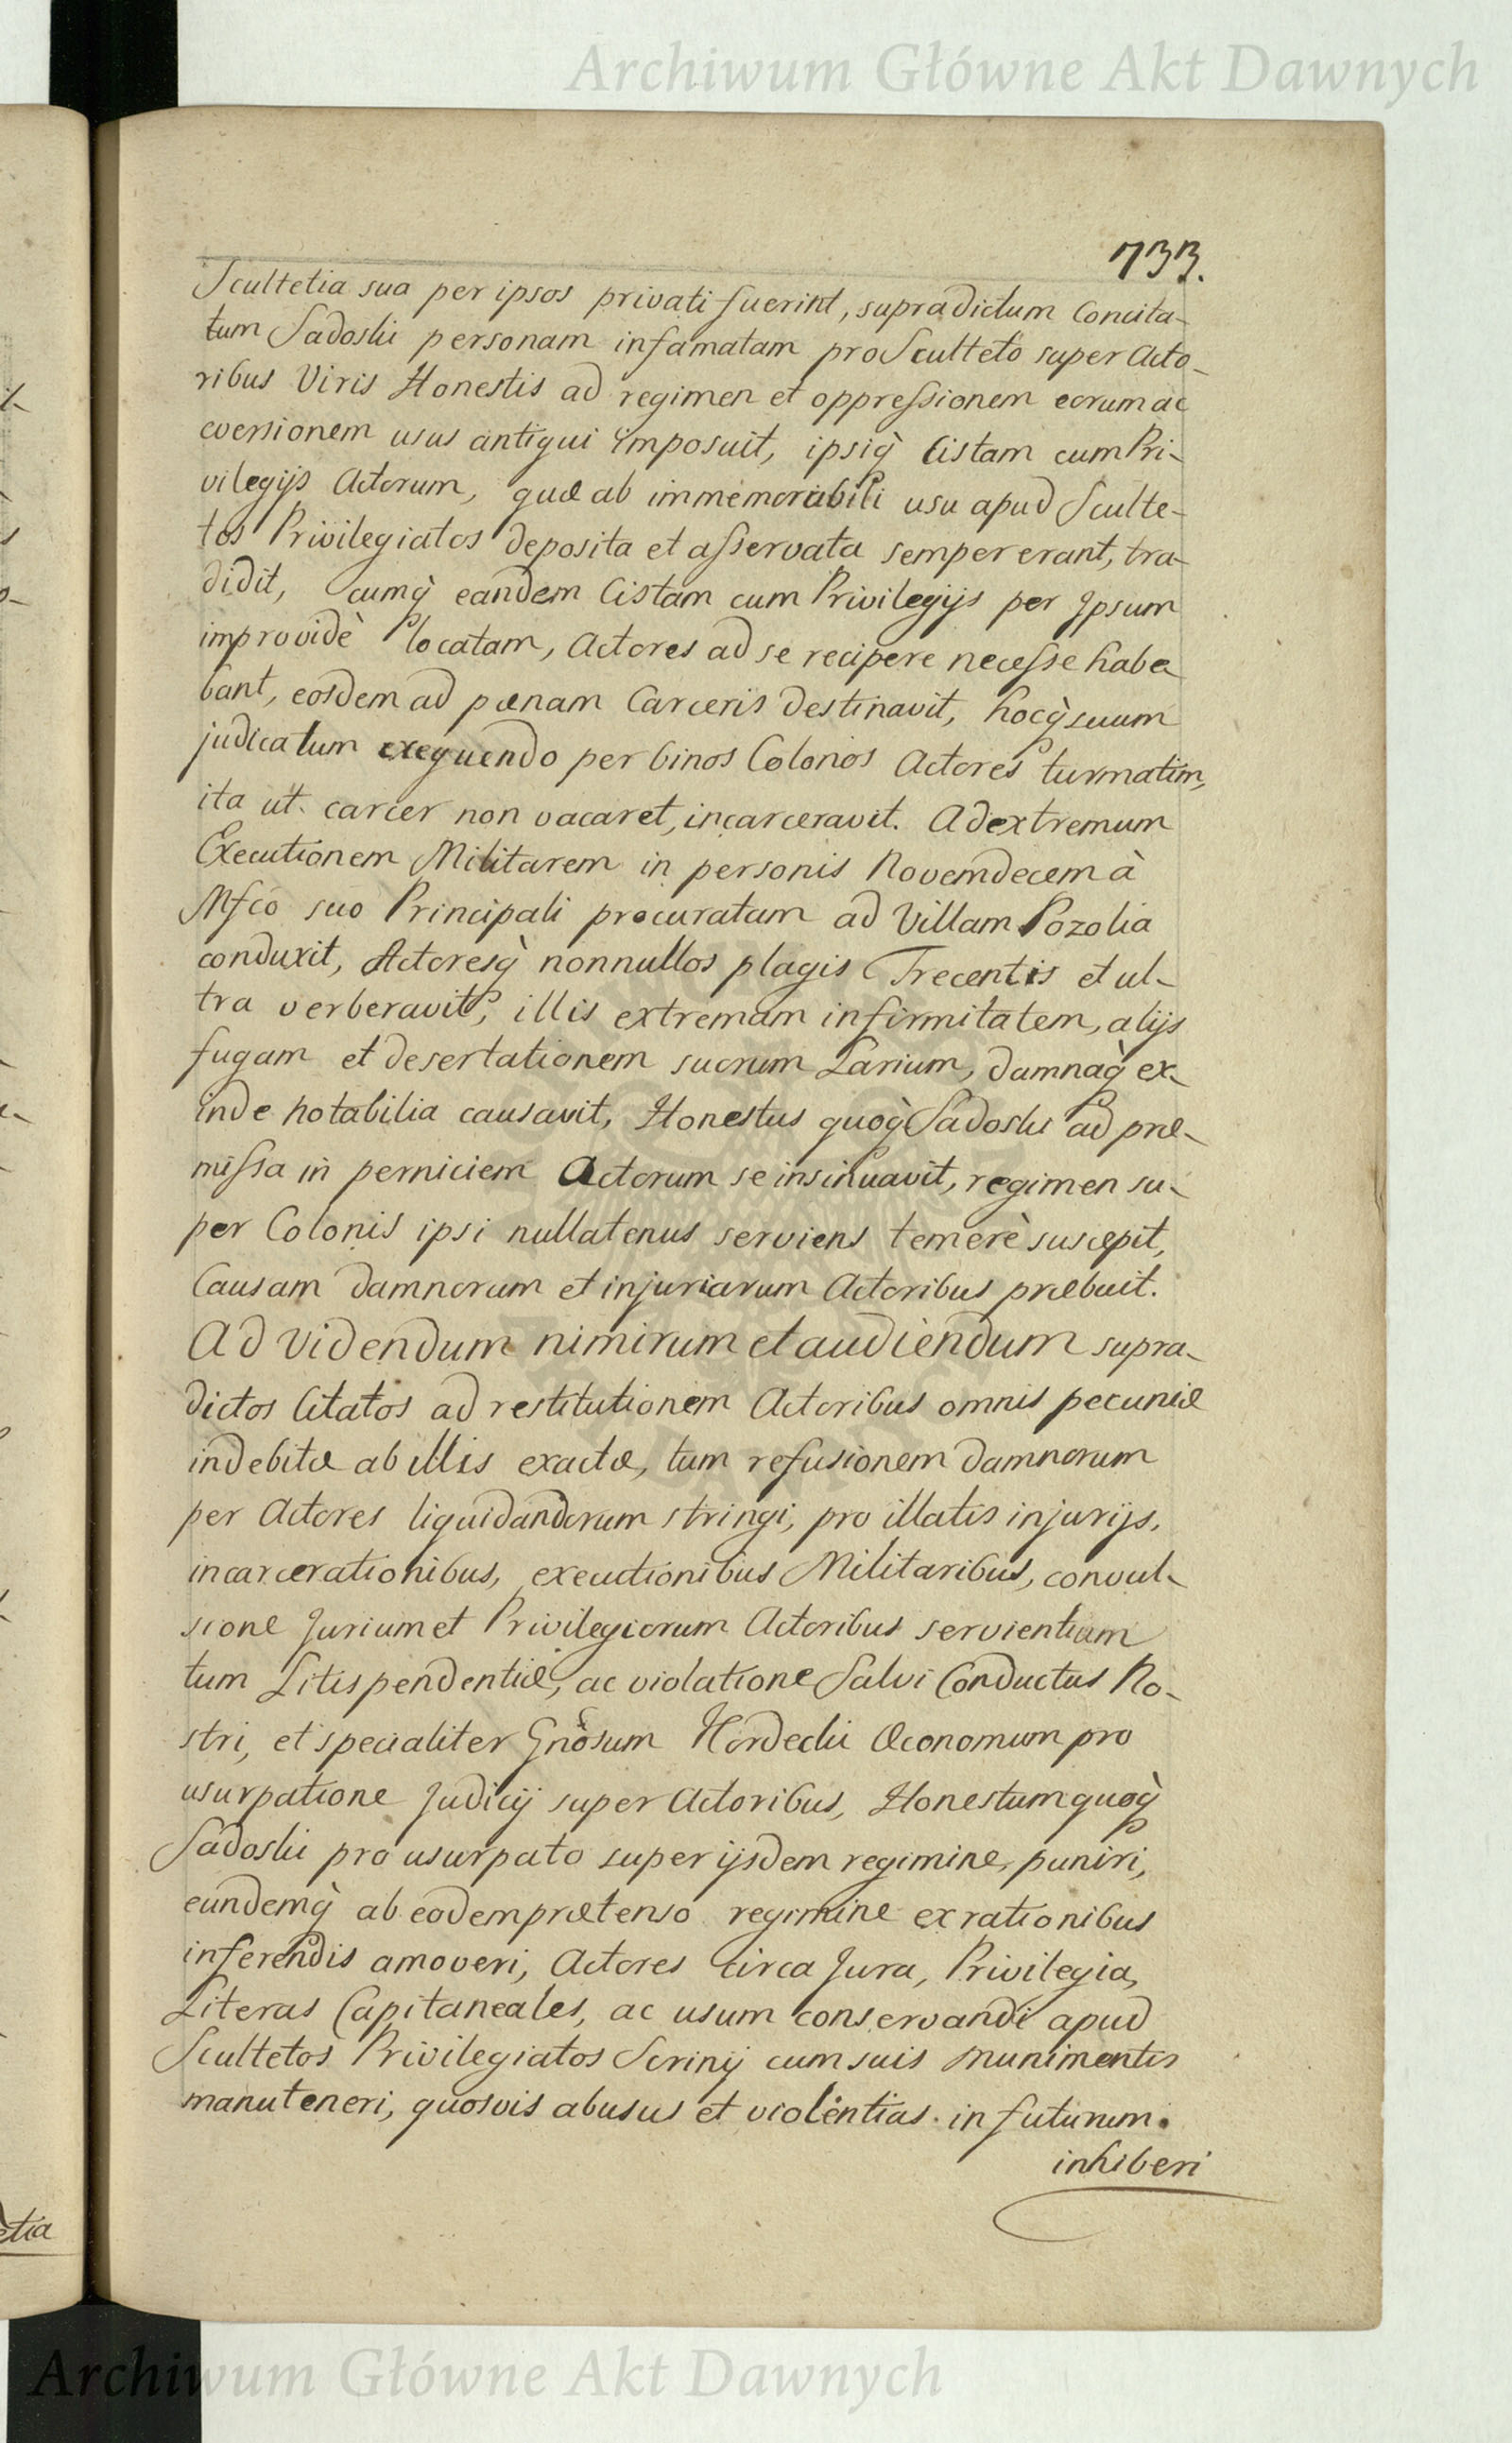 Archiwum Główne Akt Dawnych
733.
Scultetia sua per ipsos privati fuerint, supradictum Concita-
tum Sadoski personam infamatam pro Sculteto super Acto-
ribus Viris Honestis ad regimen et oppressionem eorum ac
eversionem usus antiqui imposuit, ipsiq̀ Cistam cum Pri-
vilegijs Actorum, quæ ab immemorabili usu apud Sculte-
tos Privilegiatos deposita et asservata semper erant, tra-
didit, cumq̀ eandem Cistam cum Privilegijs per Ipsum
improvidè locatam, Actores ad se recipere necesse habe
bant, eosdem ad pœnam Carceris destinavit, hocq̀ suum
judicatum exequendo per binos Colonos Actores turmatim,
ita ut carcer non vacaret, incarceravit. Ad extremum
Executionem Militarem in personis Novemdecem à
Mfco suo Principali procuratam ad Villam Pozolia
conduxit, Actoresq̀ nonnullos plagis Trecentis et ul-
tra verberavit, illis extremam infirmitatem, alijs
fugam et desertationem suorum Larium, damnaq̀ ex-
inde notabilia causavit, Honestus quoq̀ Sadoski ad præ-
missa in perniciem Actorum se insinuavit, regimen su-
per Colonis ipsi nullatenus serviens temerè suscepit,
Causam damnorum et injuriarum Actoribus præbuit.
Ad Videndum nimirum et audiendum supra-
dictos Citatos ad restitutionem Actoribus omnis pecuniæ
indebitæ ab illis exactæ, tum refusionem damnorum
per Actores liquidandorum stringi, pro illatis injurijs,
incarcerationibus, executionibus Militaribus, convul-
sione Jurium et Privilegiorum Actoribus servientium
tum Litispendentiæ, ac violatione Salvi Conductus No-
stri, et specialiter Gnosum Hordecki Œconomum pro
usurpatione Judicij super Actoribus, Honestum quoq̀
Sadoski pro usurpato super ijsdem regimine, puniri,
eundemq̀ ab eodem prætenso regimine ex rationibus
inferendis amoveri, Actores circa Jura, Privilegia,
Literas Capitaneales, ac usum conservandi apud
Scultetos Privilegiatos Scrinij cum suis munimentis
manuteneri, quosvis abusus et violentias in futurum.
inhiberi
etia
Archiwum Główne Akt Dawnych